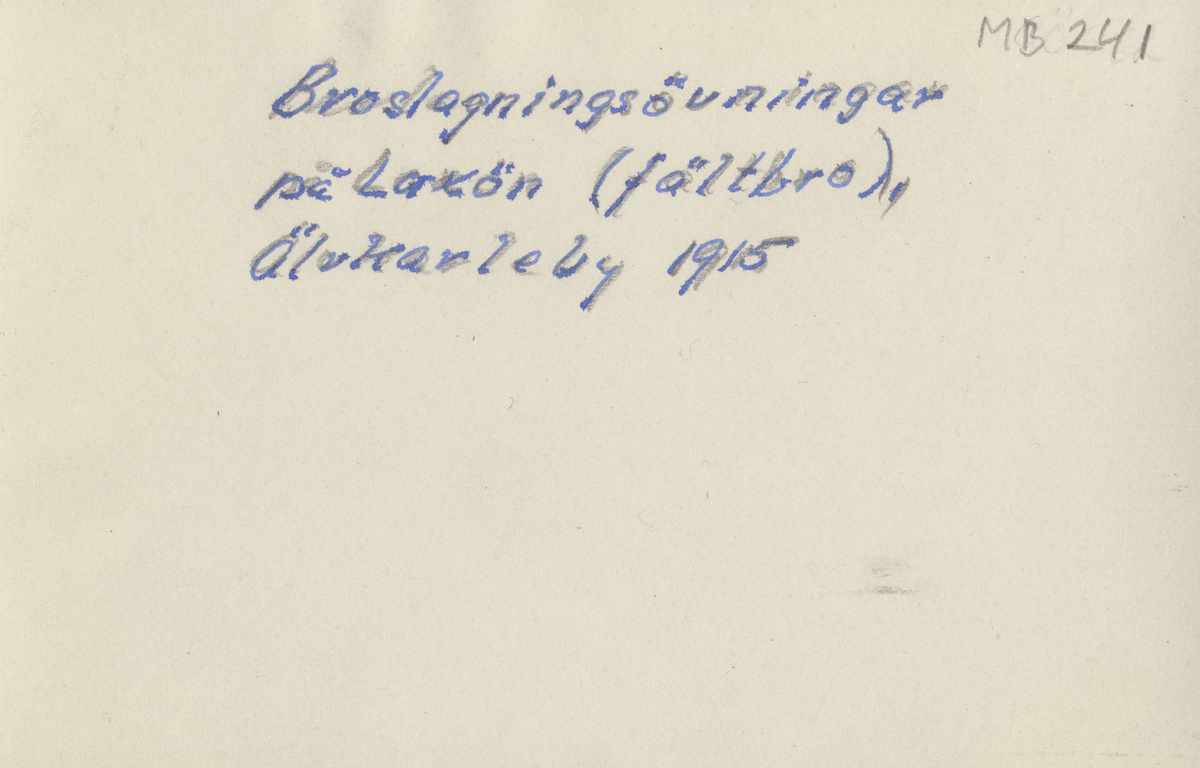 MB 241
Broslagningsövningar
på Laxön (fältbro),
Älvkarleby 1915